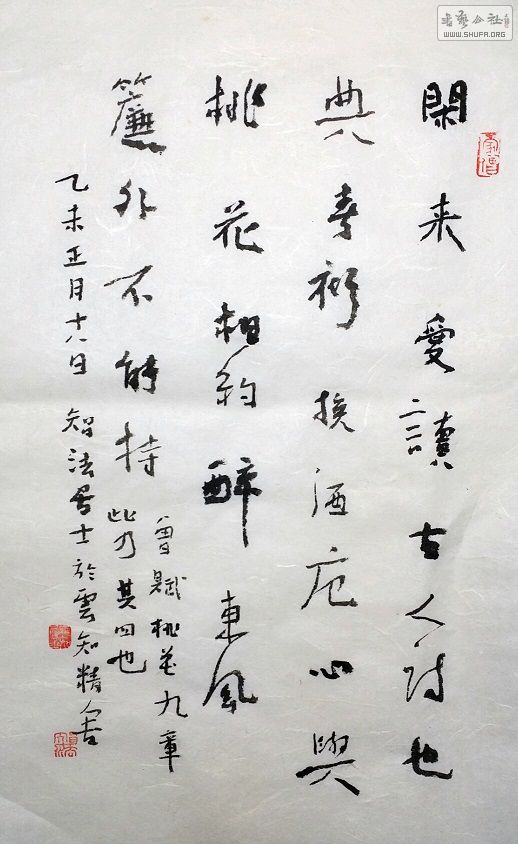 閑来愛讀古人詩也
典春衫換酒卮心與
桃花相約醉東風
簾外不能持
曾賦桃花九章
此乃其四也
乙未正月十八日智法居士於雲知精舍
WWW.SHUFA.ORG